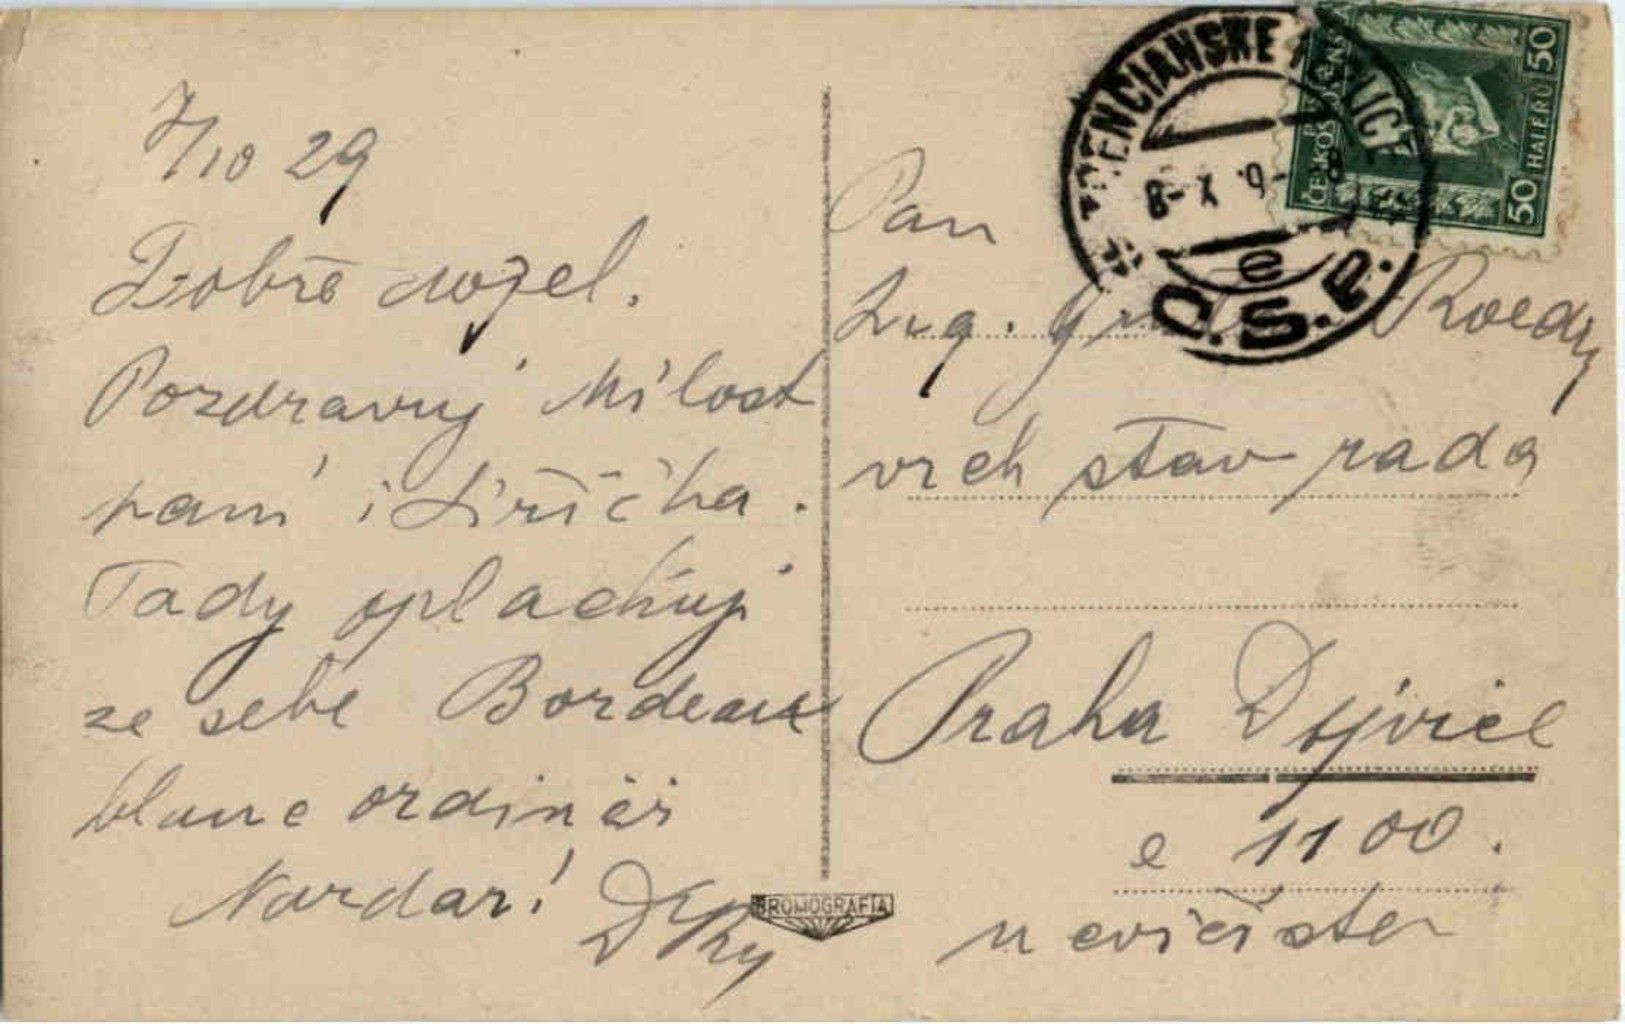 7/10 29
Dobře dojel.
Pozdravuj Milost
paní i Jiříčka.
Tady oplachuji
ze sebe Bordeaux
blanc ordinér
Nazdar!
Pan
Ing. Roedy
vrch stav rada
Praha Dejvice
č 1100.
u cvičiště
TRENČIANSKE TEPLICE
8-X 9-
e
Č.S.P.
ČESKOSLOVENSKO
50 HALÉŘŮ 50
BROMOGRAFIA